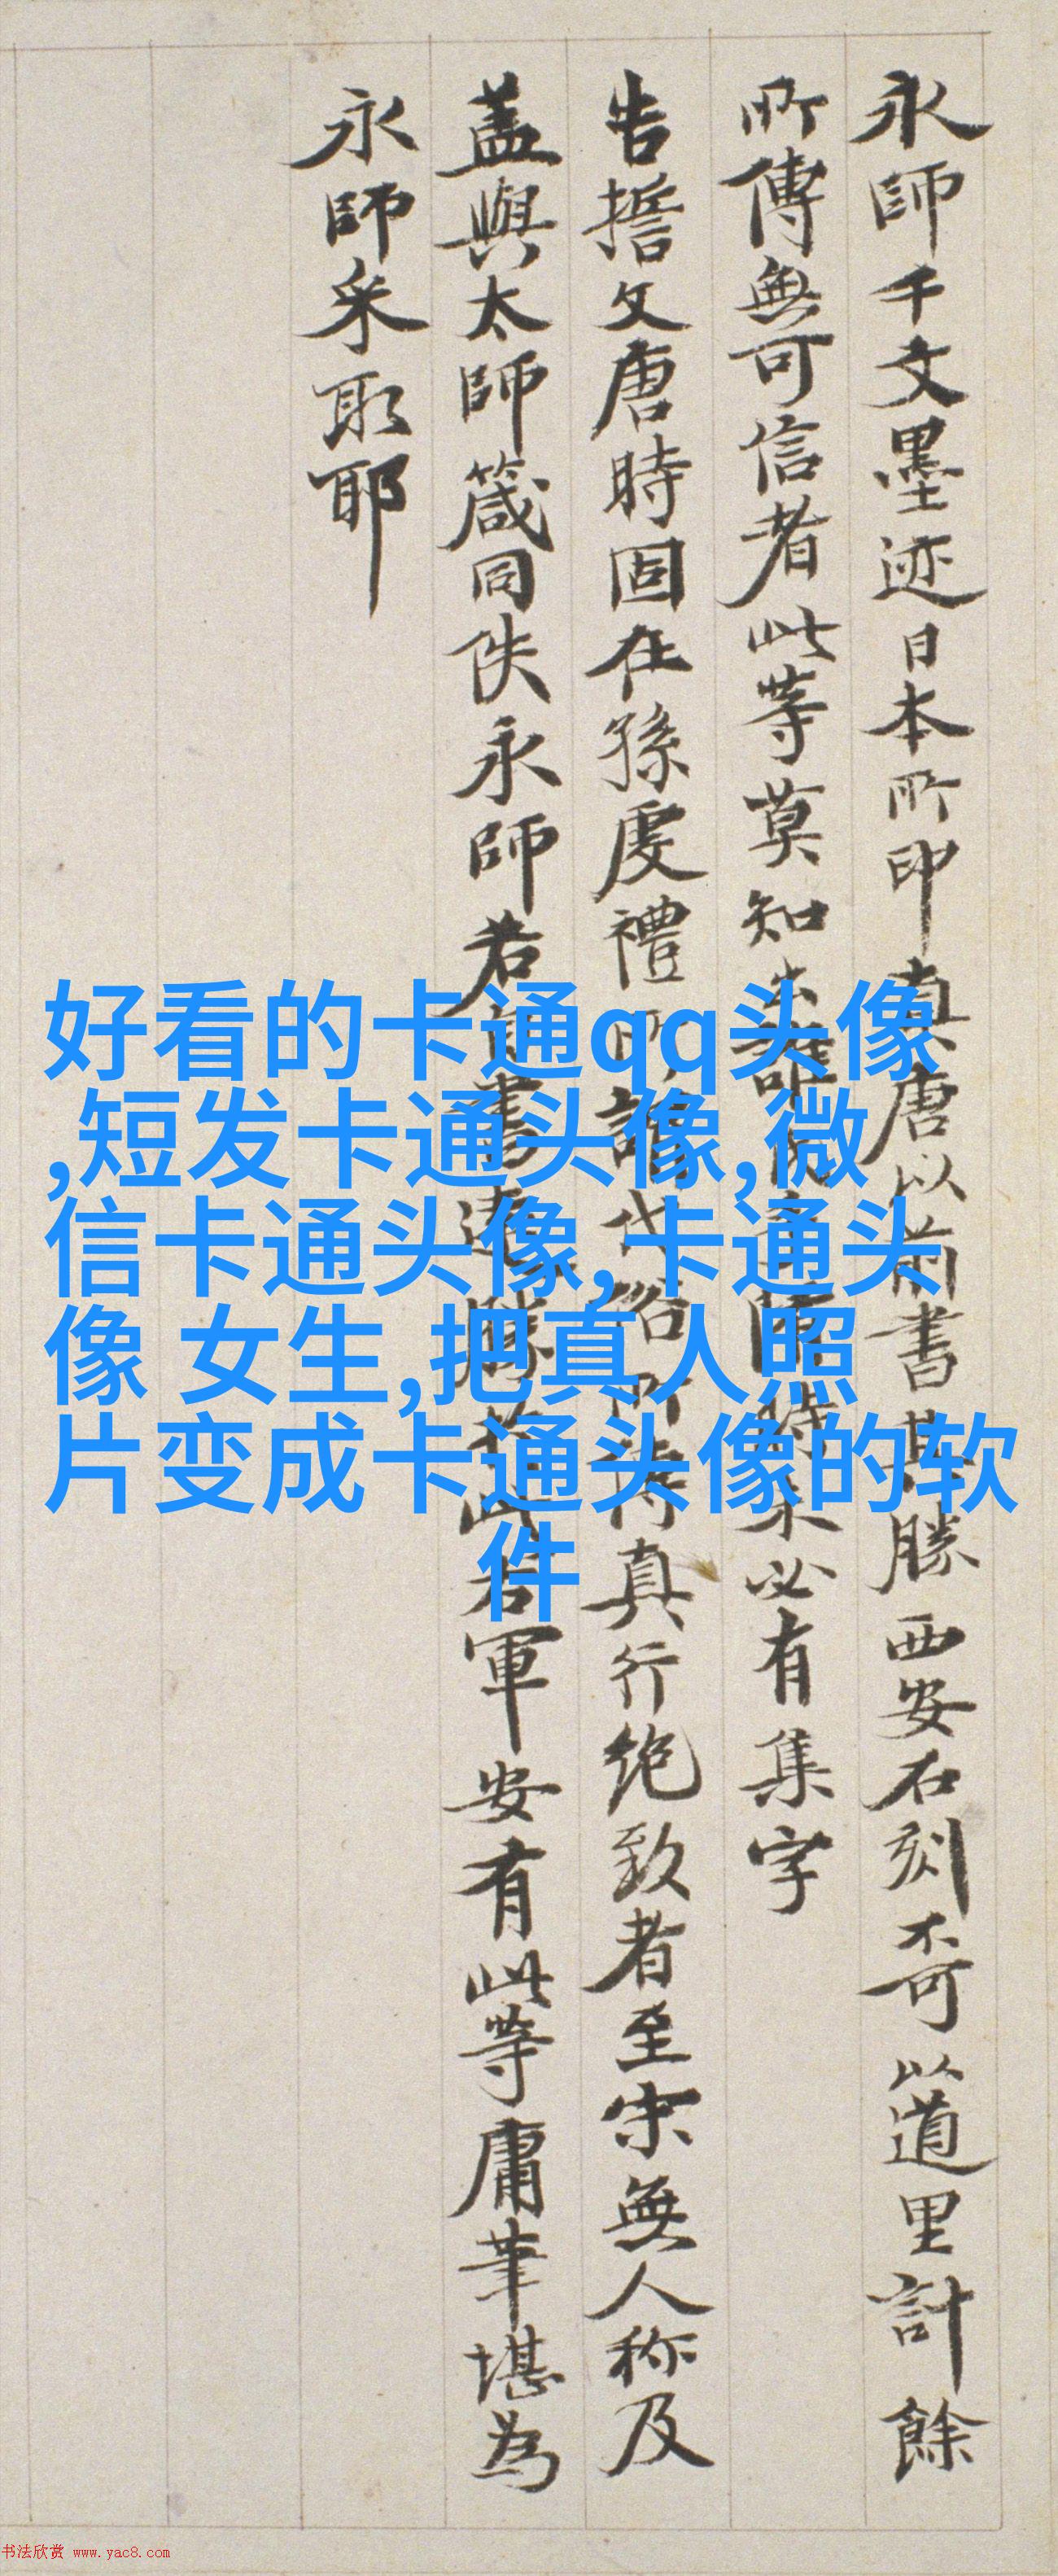 永師千文墨迹日本所印真唐以前書其勝西安石刻不可以道里計餘
所傳無可信者此等莫知出誰何永師時未必有集字
告擔文唐時固在孫虔禮所謂代俗所傳真行绝致者至宋無人称及
盖與太師箴同佚永師若自書遠勝於此右軍安有此等庸筆堪為
永師采取耶
好看的卡通qq头像
,短发卡通头像,微
信卡通头像,卡通头
像 女生,把真人照
片变成卡通头像的软
件
书法欣赏 www.yac8.com